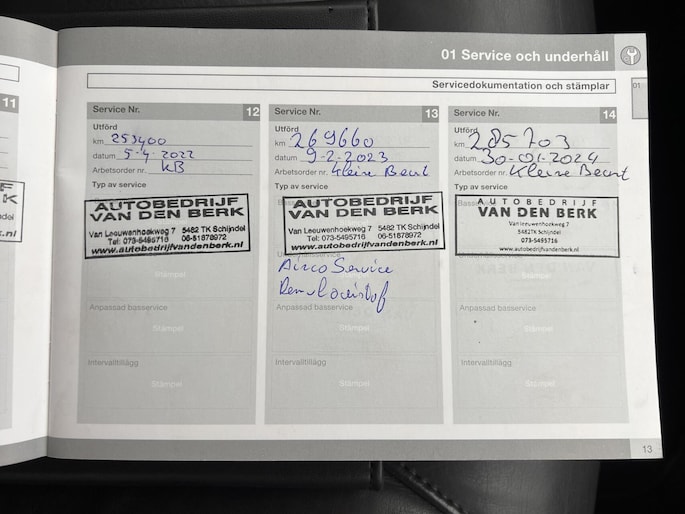 01 Service och underhåll
01
Servicedokumentation och stämplar
11
Service Nr. 12
Utförd
km 253400
datum 5-4-2022
Arbetsorder nr. KB
Typ av service
AUTOBEDRIJF
VAN DEN BERK
Van Leeuwenhoekweg 7 5482 TK Schijndel
Tel: 073-5495716 06-51878972
www.autobedrijfvandenberk.nl
Stämpel
Anpassad basservice
Stämpel
Intervalltillägg
Stämpel
Service Nr. 13
Utförd
km 269660
datum 9-2-2023
Arbetsorder nr. Kleine Beurt
Typ av service
AUTOBEDRIJF
VAN DEN BERK
Van Leeuwenhoekweg 7 5482 TK Schijndel
Tel: 073-5495716 06-51878972
www.autobedrijfvandenberk.nl
Airco Service
Remvloeistof
Anpassad basservice
Stämpel
Intervalltillägg
Stämpel
Service Nr. 14
Utförd
km 285703
datum 30-01-2024
Arbetsorder nr. Kleine Beurt
Typ av service
AUTOBEDRIJF
VAN DEN BERK
Van Leeuwenhoekweg 7
5482TK Schijndel
073-5495716
www.autobedrijfvandenberk.nl
Stämpel
Anpassad basservice
Stämpel
Intervalltillägg
Stämpel
13